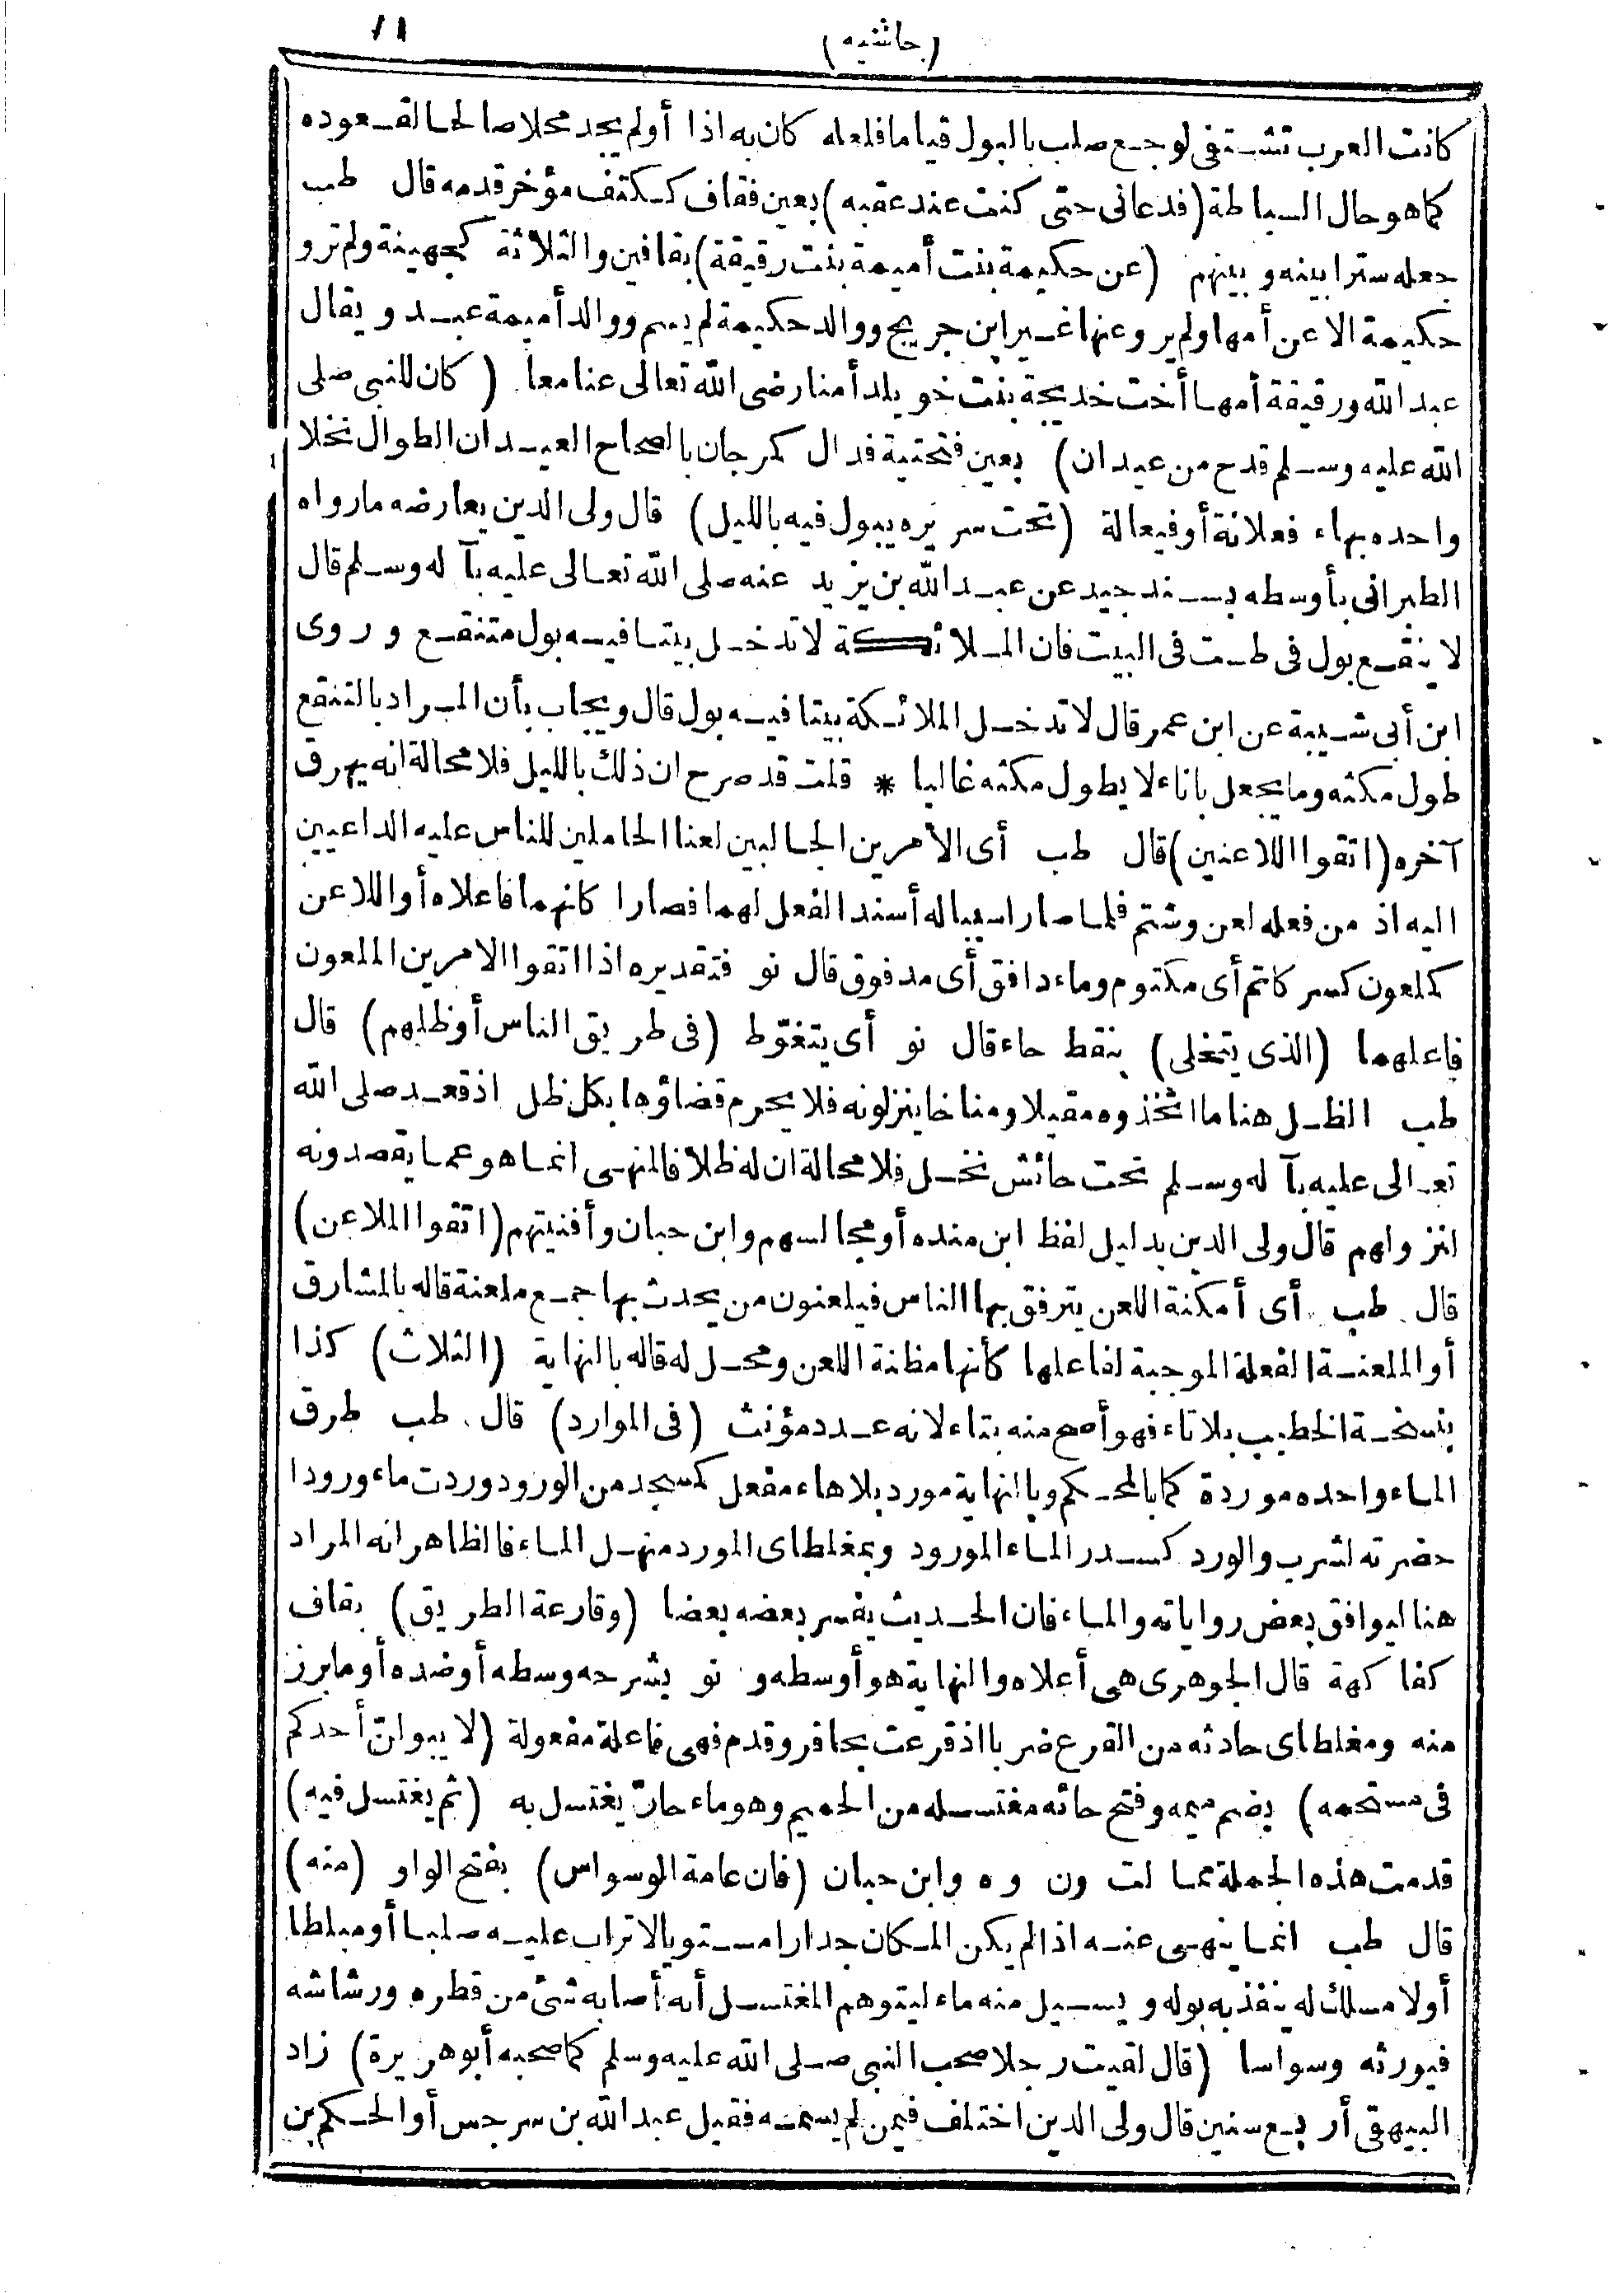 (حاشيه)
١١
كانت العرب تشتفى لوجع صلب بالبول قياما فلعله كان به اذا أولم يجد محلا صالحا لقعوده
كما هو حال السباطة (فدعانى حتى كنت عند عقبه) بعين فقاف ككتف مؤخر قدمه قال طب
جعله سترا بينه وبينهم (عن حكيمة بنت أميمة بنت رقيقة) بقافين والثلاثة كجهينة ولم ترو
حكيمة الا عن أمها ولم يرو عنها غير ابن جريج ووالد حكيمة لم يسم ووالد أميمة عبد ويقال
عبد الله ورقيقة أمها أخت خديجة بنت خويلد أمنا رضى الله تعالى عنا معا (كان للنبى صلى
الله عليه وسلم قدح من عيدان) بعين فتحتية فدال كمرجان بالصحاح العيدان الطوال نخلا
واحده بهاء فعلانة أو فيعالة (تحت سريره يبول فيه بالليل) قال ولى الدين يعارضه ما رواه
الطبرانى بأوسطه بسند جيد عن عبد الله بن يزيد عنه صلى الله تعالى عليه بآ له وسلم قال
لا ينقع بول فى طست فى البيت فان الملائكة لا تدخل بيتا فيه بول متنقع وروى
ابن أبى شيبة عن ابن عمر قال لا تدخل الملائكة بيتا فيه بول قال ويجاب بأن المراد بالتنقع
طول مكثه وما يجعل باناء لا يطول مكثه غالبا * قلت قد صرح ان ذلك بالليل فلا محالة انه يهرق
آخره (اتقوا اللاعنين) قال طب أى الأمرين الجالبين لعنا الحاملين للناس عليه الداعيين
اليه اذ من فعله لعن وشتم فلما صارا سببا له أسند الفعل لهما فصارا كانهما فاعلاه أو اللاعن
كملعون كسر كاتم أى مكتوم وماء دافق أى مدفوق قال نو فتقديره اذا اتقوا الامرين الملعون
فاعلهما (الذى يتخلى) بنقط حاء قال نو أى يتغوّط (فى طريق الناس أو ظلهم) قال
طب الظل هنا ما اتخذوه مقيلا ومناخا ينزلونه فلا يحرم قضاؤها بكل ظل اذ قعد صلى الله
تعالى عليه بآ له وسلم تحت حائش نخل فلا محالة ان له ظلا فالنهى انما هو عما يقصدونه
لنزولهم قال ولى الدين بدليل لفظ ابن منده أو مجالسهم وابن حبان وأفنيتهم (اتقوا الملاعن)
قال طب أى أمكنة اللعن يترفق بها الناس فيلعنون من يحدث بها جمع ملعنة قاله بالمشارق
أو الملعنة الفعلة الموجبة لفاعلها كأنها مظنة اللعن ومحل له قاله بالنهاية (الثلاث) كذا
بنسخة الخطيب بلا تاء فهو أصح منه بتاء لانه عدد مؤنث (فى الموارد) قال طب طرق
الماء واحده موردة كما بالمحكم وبالنهاية مورد بلا هاء مفعل كمسجد من الورود وردت ماء ورودا
حضرته لشرب والورد كسدر الماء المورود وبمغلطاى المورد منهل الماء فالظاهر انه المراد
هنا ليوافق بعض رواياته والماء فان الحديث يفسر بعضه بعضا (وقارعة الطريق) بقاف
كفاكهة قال الجوهرى هى أعلاه والنهاية هو أوسطه و نو بشرحه وسطه أو ضده أو ما برز
منه ومغلطاى حادثه من القرع ضربا اذ قرعت بحافر وقدم فهى فاعلة مفعولة (لا يبولنّ أحدكم
فى مستحمه) بضم ميمه وفتح حائه مغتسله من الحميم وهو ماء حارّ يغتسل به (ثم يغتسل فيه)
قدمت هذه الجملة عما لت ون وه وابن حبان (فان عامة الوسواس) بفتح الواو (منه)
قال طب انما ينهى عنه اذا لم يكن المكان جدارا مستويا لا تراب عليه صلبا أو مبلطا
أو لا مسلك له ينفذ به بوله ويسيل منه ماء ليتوهم المغتسل أنه أصابه شئ من قطره ورشاشه
فيورثه وسواسا (قال لقيت رجلا صحب النبى صلى الله عليه وسلم كما صحبه أبو هريرة) زاد
البيهقى أربع سنين قال ولى الدين اختلف فيمن لم يسمه فقيل عبد الله بن سرجس أو الحكم بن